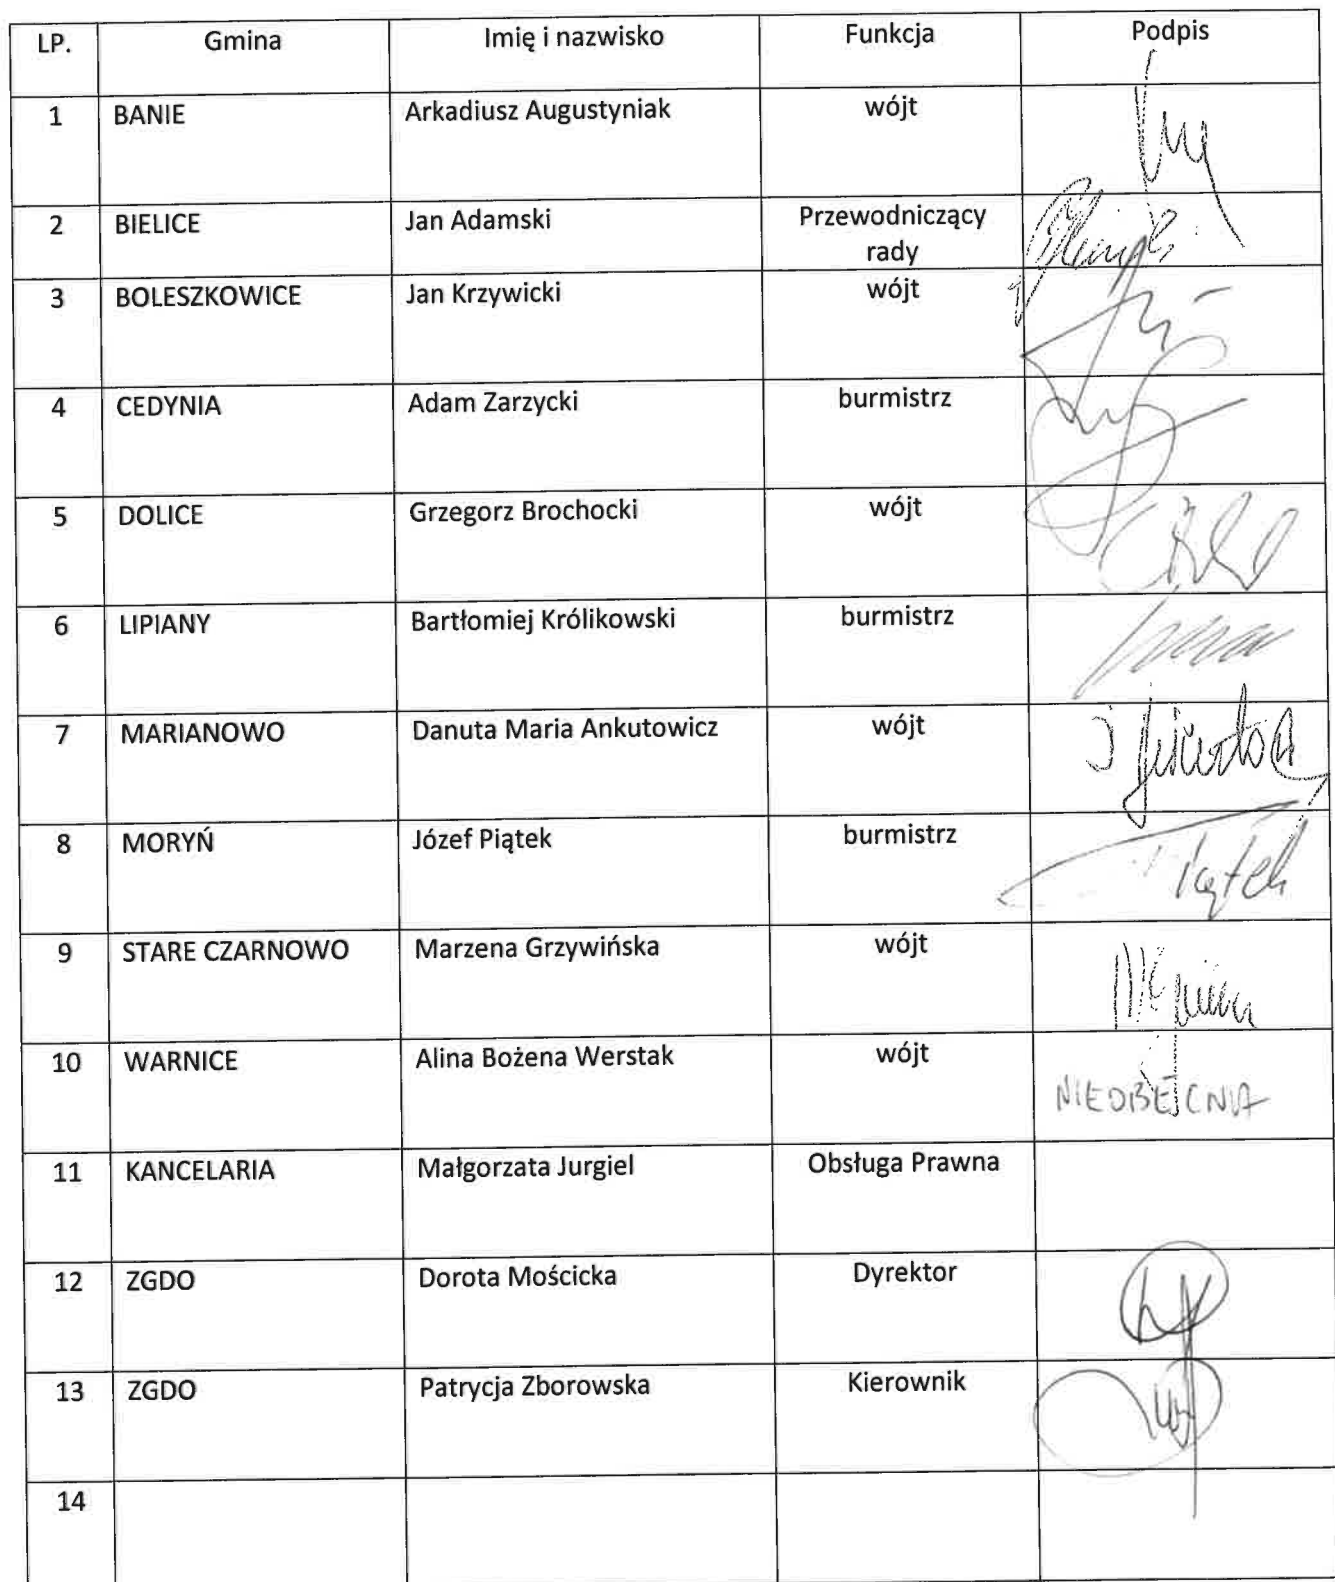 LP. Gmina Imię i nazwisko Funkcja Podpis
1 BANIE Arkadiusz Augustyniak wójt
2 BIELICE Jan Adamski Przewodniczący
rady
3 BOLESZKOWICE Jan Krzywicki wójt
4 CEDYNIA Adam Zarzycki burmistrz
5 DOLICE Grzegorz Brochocki wójt
6 LIPIANY Bartłomiej Królikowski burmistrz
7 MARIANOWO Danuta Maria Ankutowicz wójt
8 MORYŃ Józef Piątek burmistrz Piątek
9 STARE CZARNOWO Marzena Grzywińska wójt
10 WARNICE Alina Bożena Werstak wójt NIEOBECNA
11 KANCELARIA Małgorzata Jurgiel Obsługa Prawna
12 ZGDO Dorota Mościcka Dyrektor
13 ZGDO Patrycja Zborowska Kierownik
14